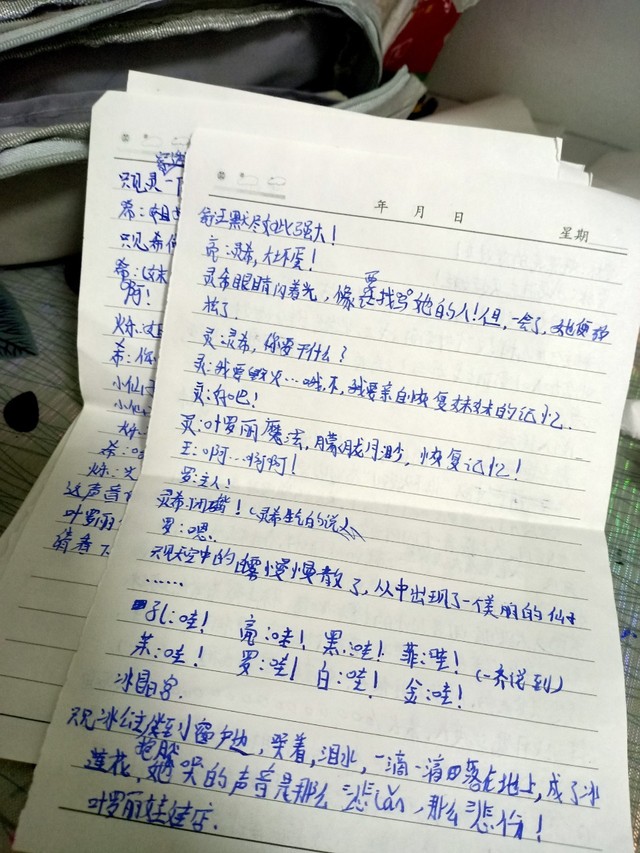 年 月 日
星期
舒王默居如此强大!
亮:灵希,大坏蛋!
灵希眼睛闪着光,像要找骂她的人!但,一会了,她便放
松了.
灵:灵希,你要干什么?
灵:我要毁灭…哦,不,我要亲自恢复妹妹的记忆.
灵:好吧!
灵:叶罗丽魔法,朦胧月沙,恢复记忆!
王:啊…啊啊!
罗:主人!
灵希:闭嘴!(灵希生气的说)
罗:嗯.
只见天空中的雾慢慢散了,从中出现了一个美丽的仙子
……
孔:哇! 亮:哇! 黑:哇! 菲:哇!
茉:哇! 罗:哇! 白:哇! 金:哇! (一齐说到)
冰晶宫.
只见冰公主坐到小窗户边,哭着,泪水,一滴一滴落在地上,成了冰
莲花,她哭的声音是那么悲凉,那么悲伤!
叶罗丽娃娃店.
只见灵一
希:姐
只见希
希:这
啊!
火烁:这
希:你
小仙
小仙
希:
烁:
这声音
叶罗丽
清香